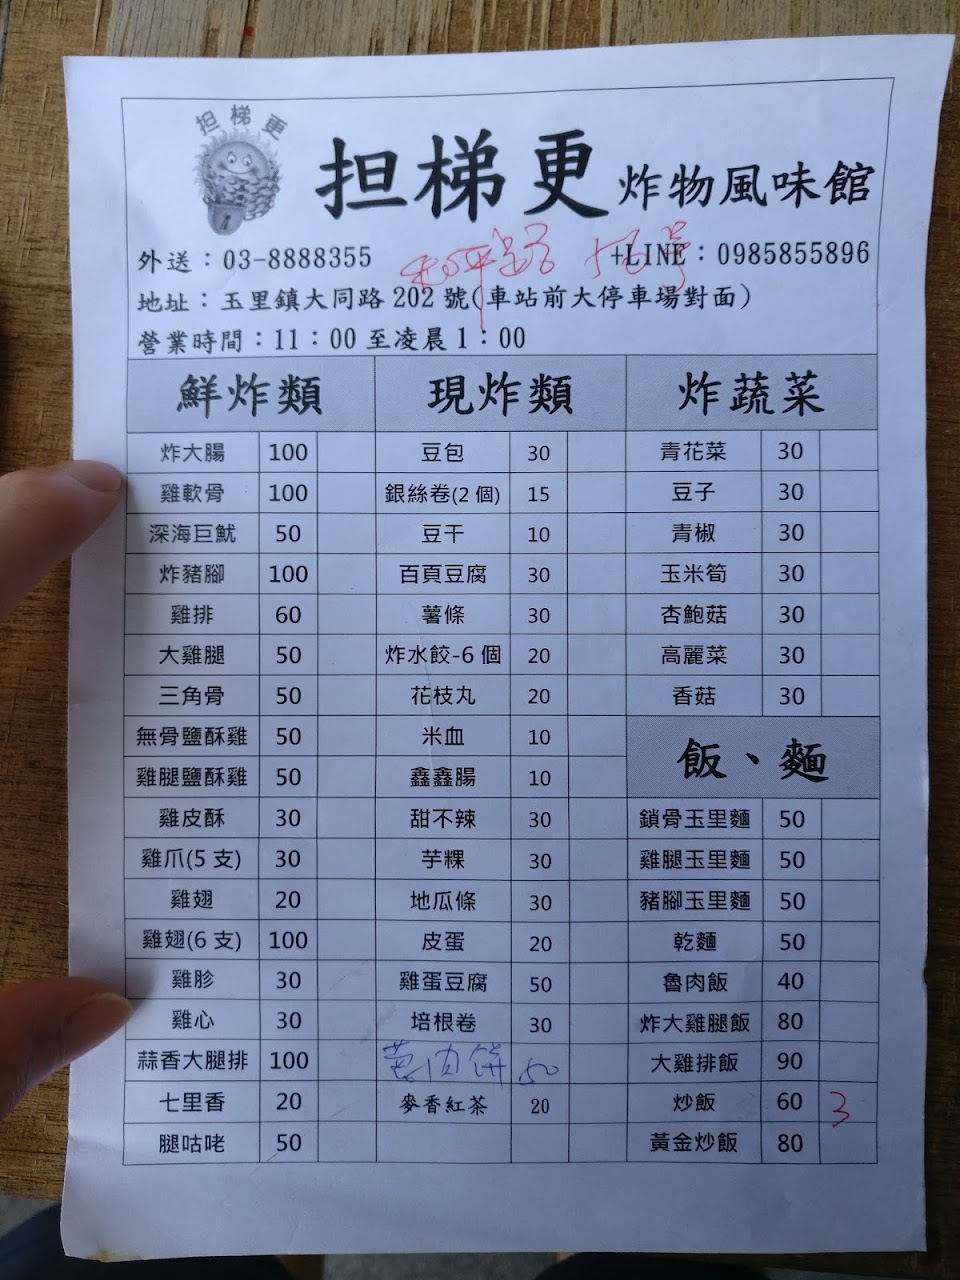 担梯更
担梯更 炸物風味館
外送：03-8888355 +LINE：0985855896
地址：玉里鎮大同路 202 號(車站前大停車場對面)
營業時間：11：00 至凌晨 1：00
鮮炸類 現炸類 炸蔬菜
炸大腸 100 豆包 30 青花菜 30
雞軟骨 100 銀絲卷(2 個) 15 豆子 30
深海巨魷 50 豆干 10 青椒 30
炸豬腳 100 百頁豆腐 30 玉米筍 30
雞排 60 薯條 30 杏鮑菇 30
大雞腿 50 炸水餃-6 個 20 高麗菜 30
三角骨 50 花枝丸 20 香菇 30
無骨鹽酥雞 50 米血 10
飯、麵
雞腿鹽酥雞 50 鑫鑫腸 10
雞皮酥 30 甜不辣 30 鎖骨玉里麵 50
雞爪(5 支) 30 芋粿 30 雞腿玉里麵 50
雞翅 20 地瓜條 30 豬腳玉里麵 50
雞翅(6 支) 100 皮蛋 20 乾麵 50
雞胗 30 雞蛋豆腐 50 魯肉飯 40
雞心 30 培根卷 30 炸大雞腿飯 80
蒜香大腿排 100 肉餅 50 大雞排飯 90
七里香 20 麥香紅茶 20 炒飯 60 3
腿咕咾 50 黃金炒飯 80